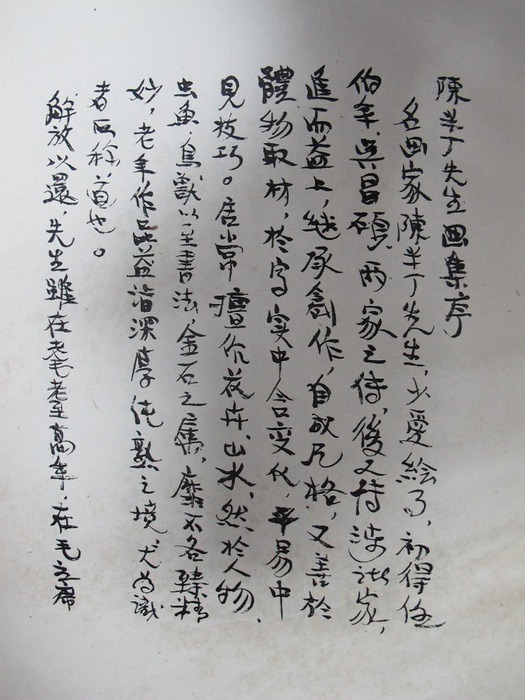 陳半丁先生画集序
名画家陳半丁先生,少愛絵事,初得任
伯年、吳昌碩两家之傳,後又博涉諸家,
進而益上,継承創作,自成凡格,又善於
體物取材,於写实中含变化,平易中
見技巧。居常擅作花卉、山水,然於人物、
虫魚、鳥獣以至書法、金石之属,靡不各臻精
妙,老年作品益脂深厚纯熟之境,尤为識
者所称道也。
解放以還,先生雖在耄耋高年,在毛主席